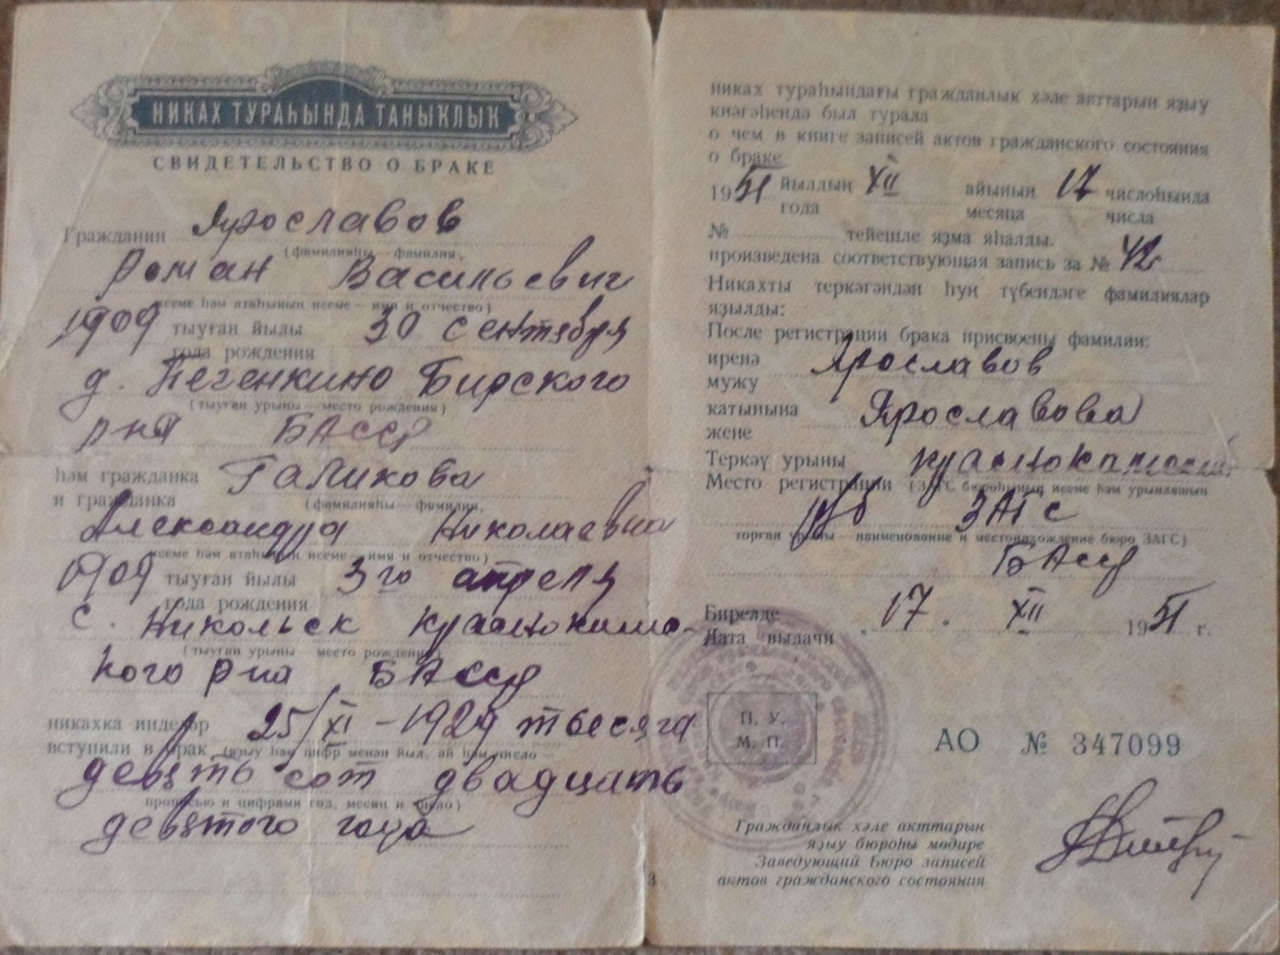 НИКАХ ТУРАҺЫНДА ТАНЫҠЛЫҠ
СВИДЕТЕЛЬСТВО О БРАКЕ
Гражданин Ярославов
(фамилияһы — фамилия)
Роман Васильевич
исеме һәм атаһының исеме — имя и отчество)
1909 тыуған йылы 30 сентября
года рождения
д. Печенкино Бирского
(тыуған урыны — место рождения)
р-на БАССР
һәм гражданка Галикова
и гражданка (фамилияһы — фамилия,
Александра Николаевна
исеме һәм атаһының исеме — имя и отчество)
1909 тыуған йылы 3го апреля
года рождения
с. Никольск Краснокамс-
(тыуған урыны место рождения)
кого р-на БАССР
никахка инделәр 25/XI - 1929 тысяча
вступили в брак (яҙыу һәм цифр менән йыл, ай һәм число
девять сот двадцать
прописью и цифрами год, месяц и число)
девятого года
никах тураһындағы гражданлык хәле акттарын яҙыу
кнәгәһендә был турала
о чем в книге записей актов гражданского состояния
о браке
1951 йылдың XII айының 17 числоһында
года месяца числа
№ тейешле яҙма яһалды.
произведена соответствующая запись за № 42
Никахты теркәгәндән һуң түбендәге фамилиялар
яҙылды:
После регистрации брака присвоены фамилии:
иренә Ярославов
мужу
катынына Ярославова
жене
Теркәү урыны Краснокамский
Место регистрации (ЗАГС бюроһының исеме һәм урынлашып
р/б ЗАГС
торған урыны — наименование и местонахождение бюро ЗАГС)
БАССР
Бирелде 17. XII 1951 г.
Дата выдачи
П. У.
М. П.
АО № 347099
Гражданлык хәле акттарын
яҙыу бюроһы мөдире
Заведующий Бюро записей
актов гражданского состояния
3